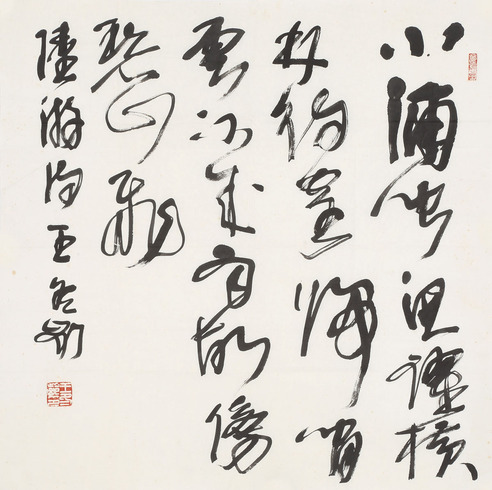 小浦聞魚躍橫
林待鶴歸閒
雲不成雨故傍
碧山飛
陸游詩王冬齡